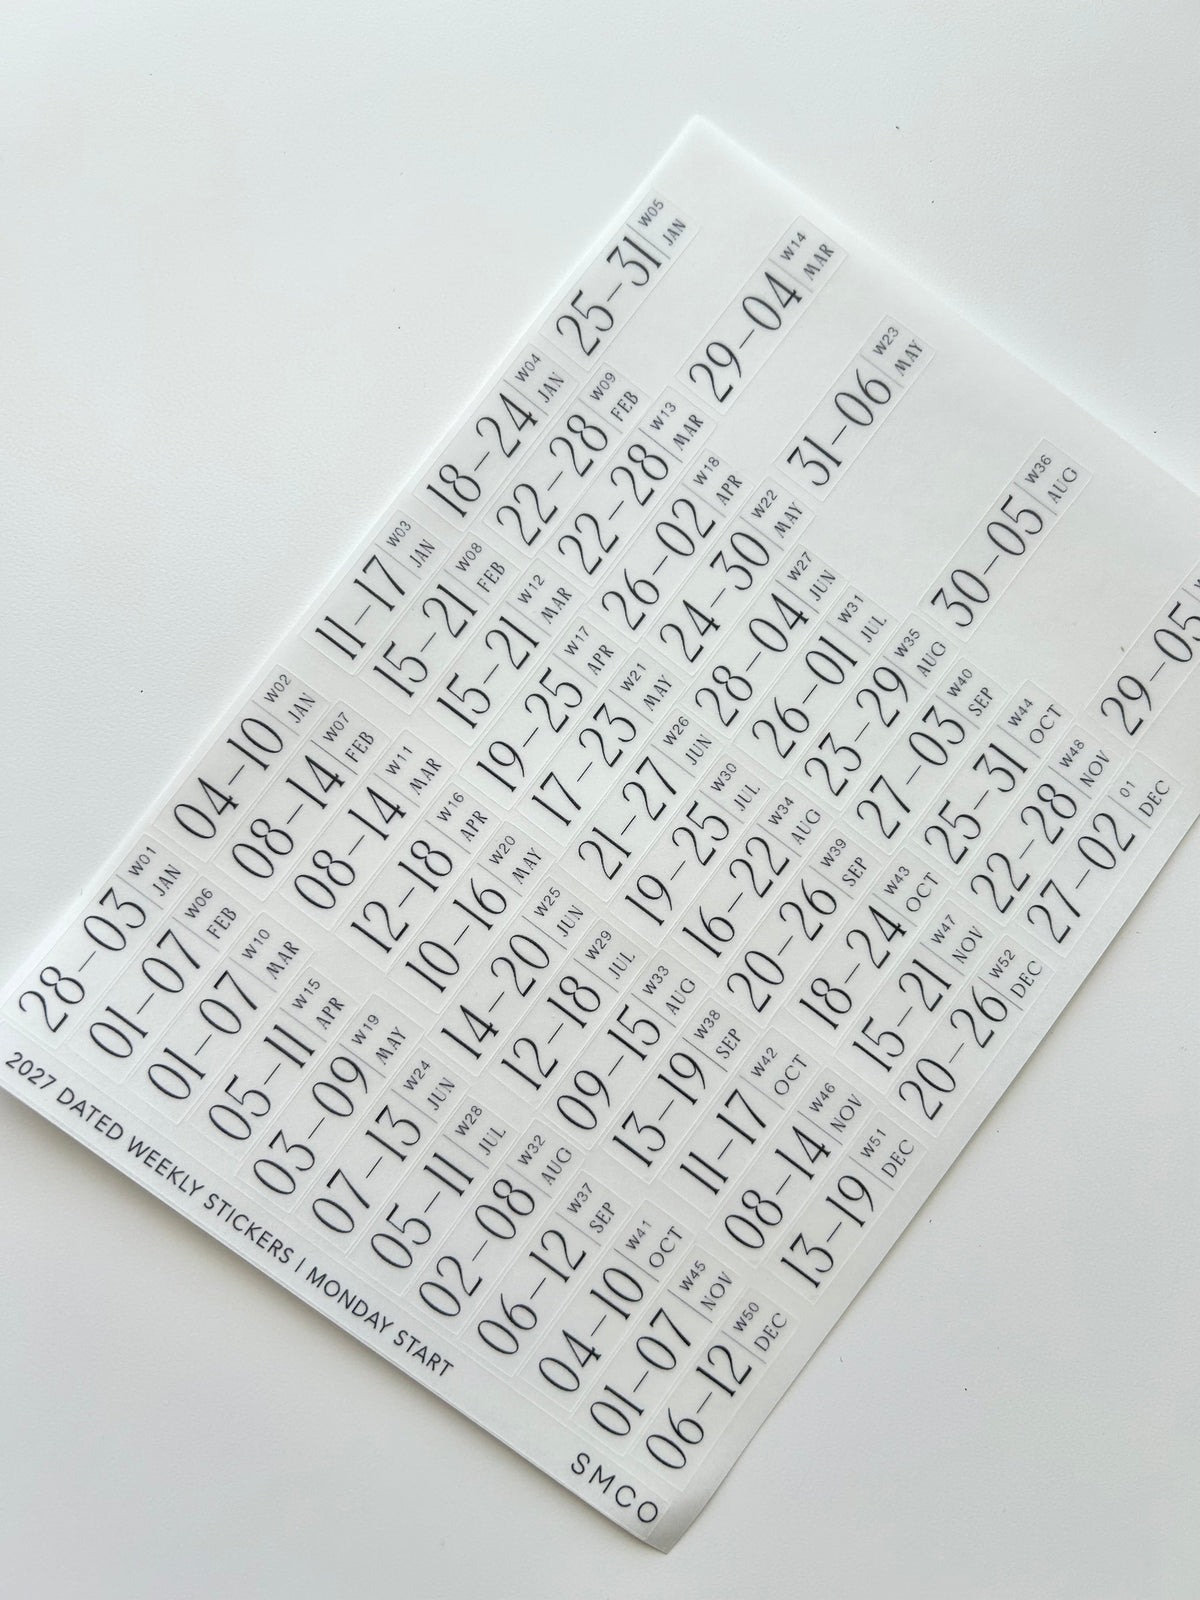 28–03 W01 JAN
04–10 W02 JAN
11–17 W03 JAN
18–24 W04 JAN
25–31 W05 JAN
01–07 W06 FEB
08–14 W07 FEB
15–21 W08 FEB
22–28 W09 FEB
01–07 W10 MAR
08–14 W11 MAR
15–21 W12 MAR
22–28 W13 MAR
29–04 W14 MAR
05–11 W15 APR
12–18 W16 APR
19–25 W17 APR
26–02 W18 APR
03–09 W19 MAY
10–16 W20 MAY
17–23 W21 MAY
24–30 W22 MAY
31–06 W23 MAY
07–13 W24 JUN
14–20 W25 JUN
21–27 W26 JUN
28–04 W27 JUN
05–11 W28 JUL
12–18 W29 JUL
19–25 W30 JUL
26–01 W31 JUL
02–08 W32 AUG
09–15 W33 AUG
16–22 W34 AUG
23–29 W35 AUG
30–05 W36 AUG
06–12 W37 SEP
13–19 W38 SEP
20–26 W39 SEP
27–03 W40 SEP
04–10 W41 OCT
11–17 W42 OCT
18–24 W43 OCT
25–31 W44 OCT
01–07 W45 NOV
08–14 W46 NOV
15–21 W47 NOV
22–28 W48 NOV
29–05
06–12 W50 DEC
13–19 W51 DEC
20–26 W52 DEC
27–02 01 DEC
2027 DATED WEEKLY STICKERS | MONDAY START
SMCO